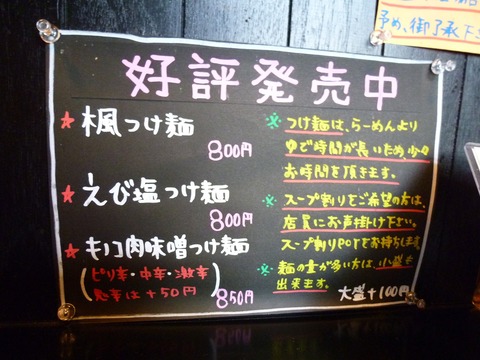 予め、御了承下
好評発売中
★楓つけ麺
800円
★えび塩つけ麺
800円
★キノコ肉味噌つけ麺
(ピリ辛・中辛・激辛
鬼辛は+50円)
850円
※つけ麺は、らーめんより
ゆで時間が長いため、少々
お時間を頂きます。
※スープ割りをご希望の方は、
店員にお声掛け下さい。
スープ割りPOTをお持ちします
※麺の量が多い方は、小盛も
出来ます。
大盛+100円